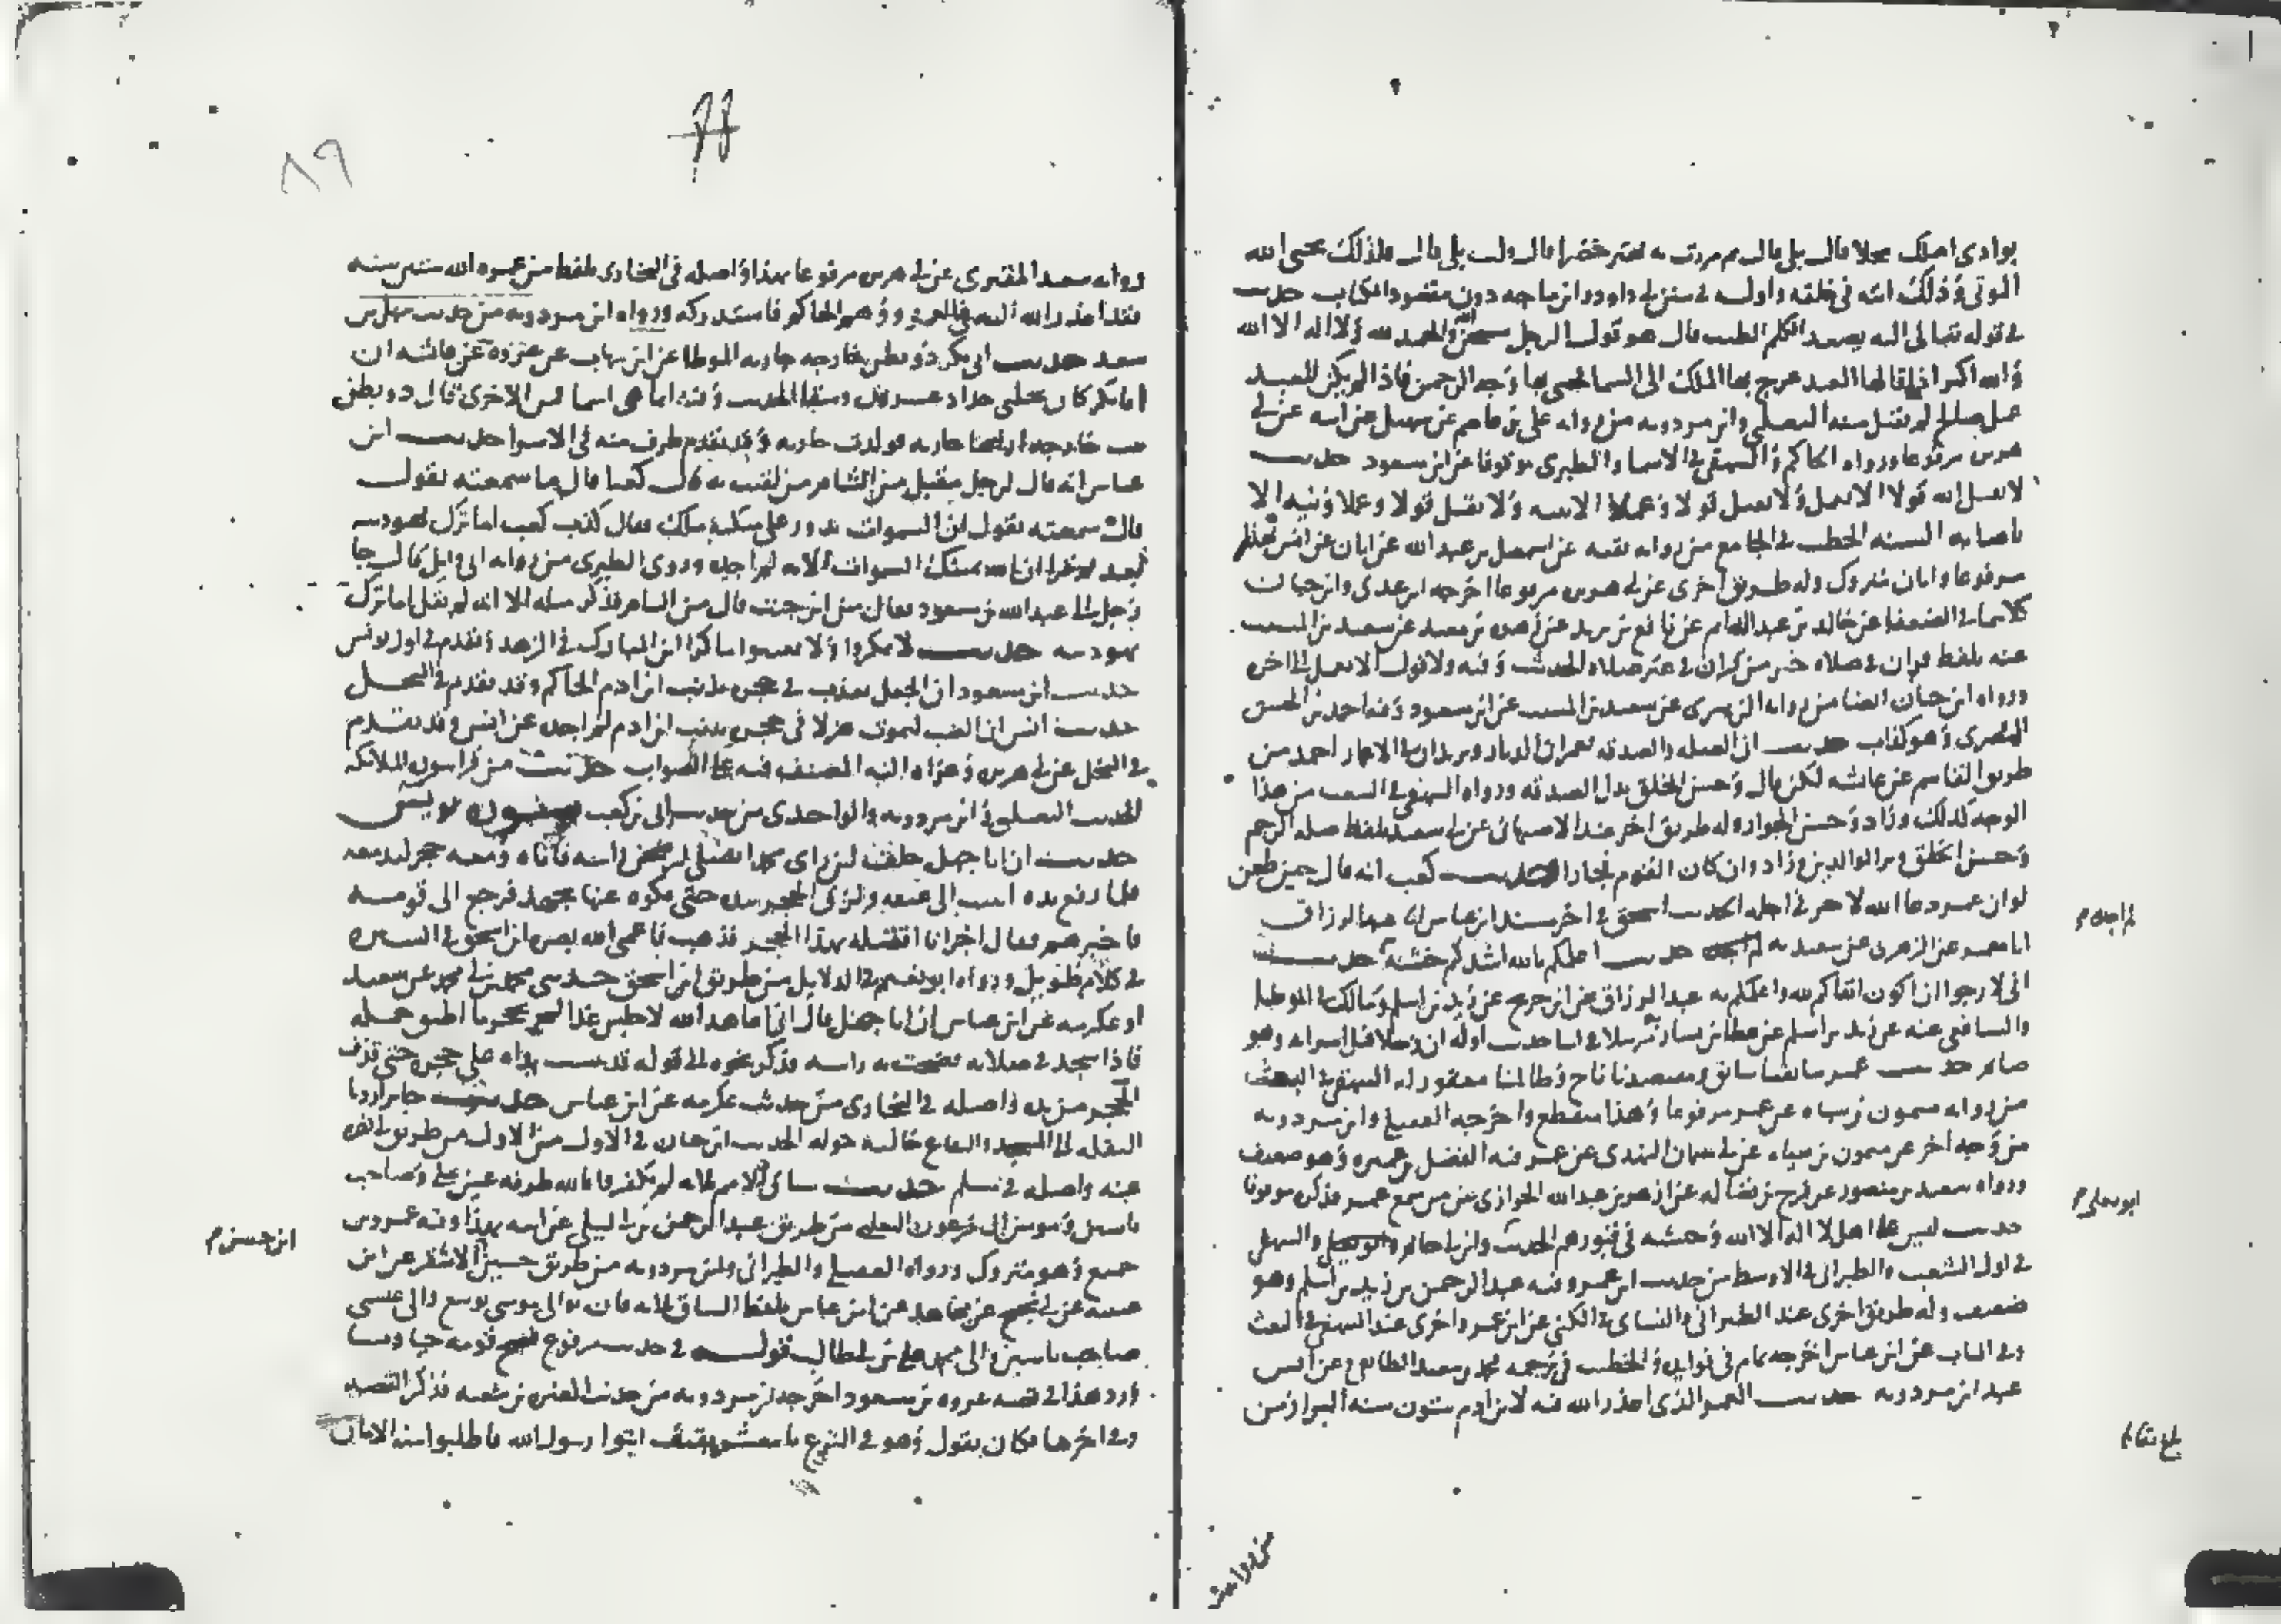 بوادي اهلك محلا قال بلى قال ثم مررت به يهتز خضرا قال قلت بلى قال فلذلك يحيى الله
الموتى وذلك آيته في خلقه واوله في سنن ابي داود وابن ماجه دون مقصود الكتاب حديث
في قوله تعالى اليه يصعد الكلم الطيب قال هو قول الرجل سبحن الله والحمد لله ولا اله الا الله
والله اكبر اذا قالها العبد عرج بها الملك الى السما فحيى بها وجه الرحمن فاذا لم يكن للعبد
عمل صالح لم يقبل منه الثعلبي وابن مردويه من رواية علي بن عاصم عن سهيل عن ابيه عن ابي
هريرة مرفوعا ورواه الحاكم والبيهقي في الاسما والطبري موقوفا عن ابن مسعود حديث
لا يقبل الله قولا الا بعمل ولا يقبل قولا وعملا الا بنية ولا يقبل قولا وعملا ونية الا
باصابة السنة الخطيب في الجامع من رواية بقية عن اسمعيل بن عبد الله عن ابان عن انس
مرفوعا وابان متروك وله طريق اخرى عن ابي هريرة مرفوعا اخرجه ابن عدي وابن حبان
كلاهما في الضعفا عن خالد بن عبد الدايم عن نافع بن يزيد عن زهرة بن معبد عن سعيد بن المسيب
عنه بلفظ قران في صلاة خير من قران في غير صلاة الحديث وفيه ولا قول الا بعمل الى اخره
ورواه ابن حبان ايضا من رواية الزهري عن سعيد بن المسيب عن ابن مسعود وفيه احمد بن الحسن
المصري وهو كذاب حديث ان الصلة والصدقة يعمران الديار ويزيدان في الاعمار احمد من
طريق القاسم عن عايشة لكن قال وحسن الخلق بدل الصدقة ورواه البيهقي في الشعب من هذا
الوجه كذلك وزاد وحسن الجوار وله طريق اخر عند الاصبهاني عن ابي سعيد بلفظ صلة الرحم
وحسن الخلق وبر الوالدين وزاد وان كان القوم فجارا حديث كعب انه قال حين طعن
لو ان عمر دعا الله لاخر في اجله الحديث اسحق في اخر مسند ابن عباس انا عبد الرزاق
انا معمر عن الزهري عن سعيد به حديث اعلمكم بالله اشدكم خشية حديث
لم اجده م
اني لارجوا ان اكون اتقاكم لله واعلمكم به عبد الرزاق عن ابن جريج عن زيد بن اسلم ومالك في الموطا
والشافعي عنه عن زيد بن اسلم عن عطا بن يسار مرسلا في اثنا حديث اوله ان رجلا قبل امراته وهو
صايم حديث عمر سابقنا سابق ومقتصدنا ناج وظالمنا مغفور له البيهقي في البعث
من رواية ميمون بن سياه عن عمر مرفوعا وهذا منقطع واخرجه العقيلي وابن مردويه
من وجه اخر عن ميمون بن سياه عن ابي عثمان النهدي عن عمر فيه الفضل بن عميرة وهو ضعيف
ورواه سعيد بن منصور عن فرج بن فضالة عن ازهر بن عبد الله الحرازي عن من سمع عمر فذكره موقوفا
حديث ليس على اهل لا اله الا الله وحشة في قبورهم الحديث وابن ابي حاتم والبيهقي
ابو يعلى م
في اول الشعب والطبراني في الاوسط من حديث ابن عمر وفيه عبد الرحمن بن زيد بن اسلم وهو
ضعيف وله طريق اخرى عند الطبراني والنساي في الكنى عن ابن عمر واخرى عند البيهقي في البعث
وفي الباب عن ابن عباس اخرجه تمام في فوايده والخطيب في ترجمة محمد بن سعيد الطايفي وعن انس
عند ابن مردويه حديث العمر الذي اعذر الله فيه لابن ادم ستون سنة البزار من
بلغ مقابلة
من رواية
٨٩
رواية سعيد المقبري عن ابي هريرة مرفوعا بهذا واصله في البخاري بلفظ من عمره الله ستين سنة
فقد اعذر الله اليه في العمر ووهم الحاكم فاستدركه ورواه ابن مردويه من حديث سهل بن
سعد حديث ابي بكر ذو بطن خارجة جارية الموطا عن ابن شهاب عن عروة عن عايشة ان
ابا بكر كان نحلني جداد عشرين وسقا الحديث وفيه انما هي اسما فمن الاخرى قال ذو بطن
بنت خارجة اراها جارية فولدت جارية وقد تقدم طرف منه في الاسرا حديث ابن
عباس انه قال لرجل مقبل من الشام من لقيت به قال كعبا قال ما سمعته يقول
قال سمعته يقول ان السموات تدور على منكب ملك فقال كذب كعب اما ترك يهوديته
بعد ثم قرا ان الله يمسك السموات الآية لم اجده وروى الطبري من رواية ابي وايل قال جا
رجل الى عبد الله بن مسعود فقال من اين جيت قال من الشام فذكر مثله الا انه لم يقل اما ترك
يهوديته حديث لا تمكروا ولا تعينوا ماكرا ابن المبارك في الزهد وتقدم في اول يونس
حديث ابن مسعود ان الجعل يعذب في جحره بذنب ابن ادم الحاكم وقد تقدم في النحل
حديث انس ان الضب ليموت هزلا في جحره بذنب ابن ادم لم اجده عن انس وقد تقدم
في النحل عن ابي هريرة وعزاه اليه المصنف فيه على الصواب حديث من قرا سورة الملايكة
الحديث الثعلبي وابن مردويه والواحدي من حديث ابي بن كعب سورة يس
حديث ان ابا جهل حلف لئن راى محمدا يصلي ليرضخن راسه فاتاه ومعه حجر ليدمغه
فلما رفع يده انثنت الى عنقه ولزق الحجر بيده حتى فكوه عنها بجهد فرجع الى قومه
فاخبرهم فقال اخر انا اقتله بهذا الحجر فذهب فاعمى الله بصره ابن اسحق في السيرة
في كلام طويل ورواه ابو نعيم في الدلايل من طريق ابن اسحق حدثني محمد بن ابي محمد عن سعيد
او عكرمة عن ابن عباس ان ابا جهل قال اني اعاهد الله لاجلسن غدا بحجر ما اطيق حمله
فاذا سجد في صلاته فضخت به راسه فذكر نحوه الى قوله قد يبست يداه على حجره حتى قذف
الحجر من يده واصله في البخاري من حديث عكرمة عن ابن عباس حديث جابر اردنا
النقلة الى المسجد والبقاع خالية حوله الحديث ابن حبان في الاول من الاول من طريق ابي نضرة
عنه واصله في مسلم حديث سباق الامم ثلاثة لم يكفروا بالله طرفة عين علي وصاحب
ياسين ومومن ال فرعون الثعلبي من طريق عبد الرحمن بن ابي ليلى عن ابيه بهذا وفيه عمرو بن
جميع وهو متروك ورواه العقيلي والطبراني وابن مردويه من طريق حسين الاشقر عن ابن
ابن حسن م
عيينة عن ابن ابي نجيح عن مجاهد عن ابن عباس بلفظ السباق ثلاثة فالى موسى يوشع والى عيسى
صاحب ياسين والى محمد علي بن ابي طالب قوله في حديث مرفوع نصح قومه حيا وميتا
ورد هذا في قصة عروة بن مسعود اخرجه ابن مردويه من حديث المغيرة بن شعبة فذكر القصة
وفي اخرها فكان يقول وهو في النزع يا معشر ثقيف ايتوا رسول الله فاطلبوا منه الامان